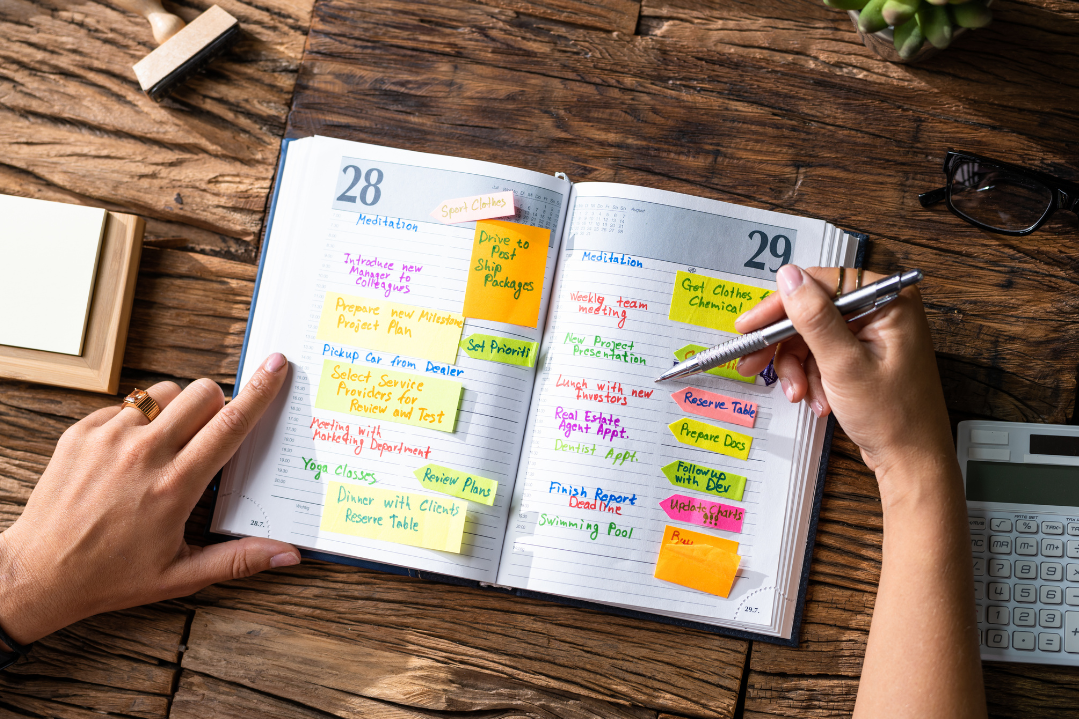 28
Sport Clothes
Meditation
Drive to
Post
Ship
Packages
Introduce new
Manager to
Colleagues
Prepare new Milestone
Project Plan
Set Prioriti
Pickup Car from Dealer
Select Service
Providers for
Review and Test
Meeting with
Marketing Department
Yoga Classes
Review Plans
Dinner with Clients
Reserve Table
28.7.
August
29
Meditation
Get Clothes f
Chemical
Weekly team
meeting
New Project
Presentation
Lunch with new
Investors
Reserve Table
Real Estate
Agent Appt.
Prepare Docs
Dentist Appt.
Follow up
with Dev
Finish Report
Deadline
Update Charts
!!!
Swimming Pool
29.7.